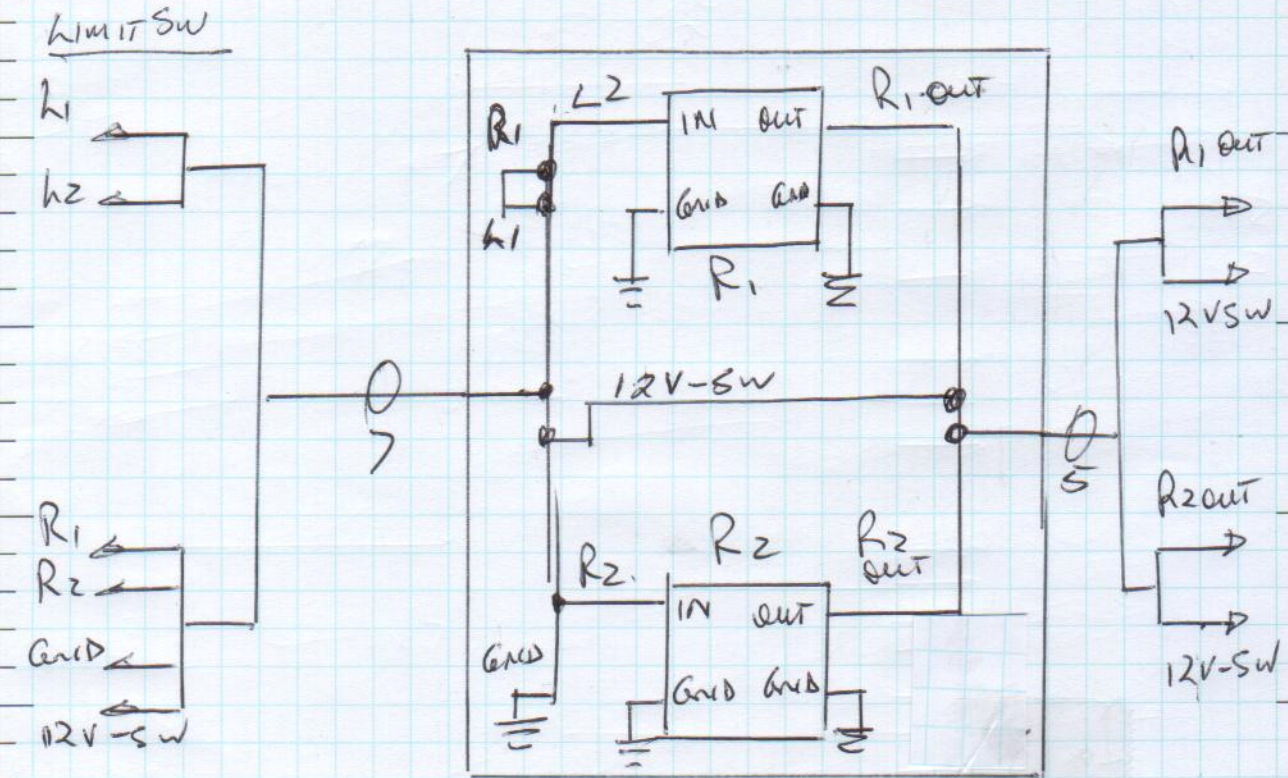 LIMIT SW
L1
L2
R1
R2
GND
12V-SW
7
R1
L1
L2
IN OUT
GND GND
R1
R1 OUT
12V-SW
R2
R2
R2 OUT
IN OUT
GND GND
GND
5
R1 OUT
12VSW
R2 OUT
12V-SW